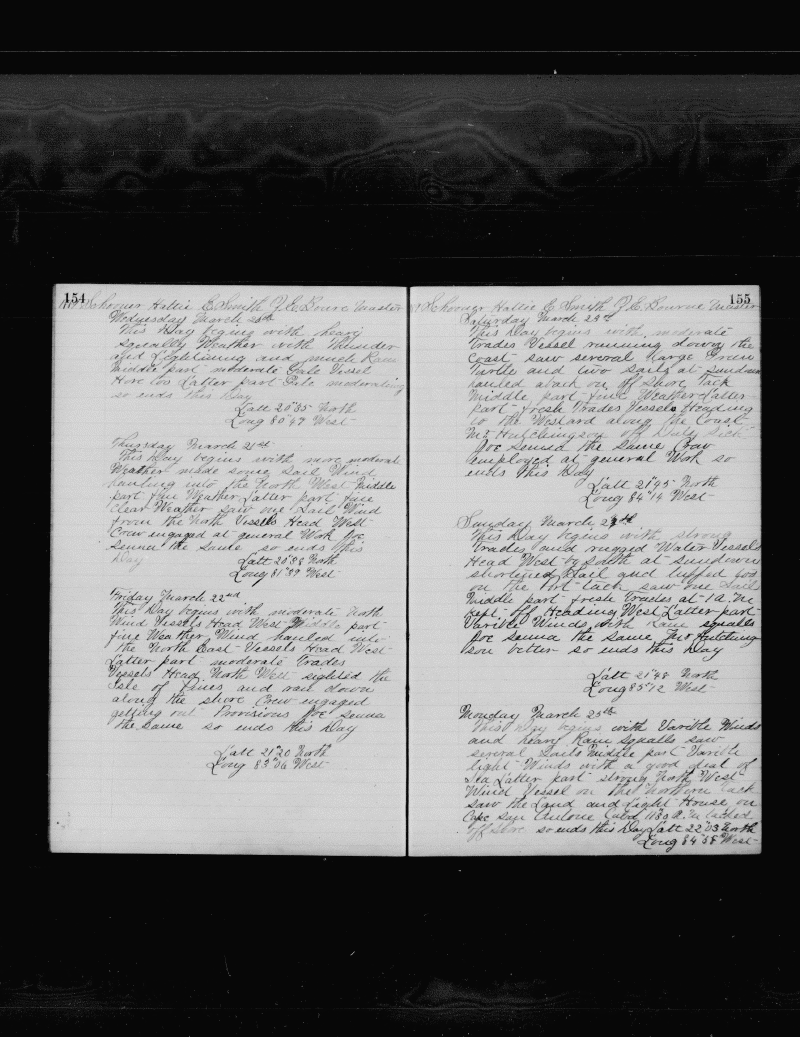 154
Schooner Hattie E. Smith J. E. Bourne Master
Wednesday March 20th
This Day begins with heavy
squally Weather with Thunder
and Lightining and much Rain
Middle part moderate Gale Vessel
Hove too Latter part Gale moderating
so ends this Day
Latt 20"85 North
Long 80"47 West
Thursday March 21st
This Day begins with more moderate
Weather made some Sail Wind
hauling into the North West Middle
part fine Weather Latter part fine
Clear Weather saw one Sail Wind
from the North Vessels Head West
Crew engaged at general Work Joe
Senna the Same so ends this
Day
Latt 20"58 North
Long 81"39 West
Friday March 22nd
This Day begins with moderate North
Wind Vessels Head West Middle part
fine Weather Wind hauled into
the North East Vessels Head West
Latter part moderate Trades
Vessels Head North West sighted the
Isle of Pines and ran down
along the shore Crew engaged
getting out Provisions Joe Senna
the Same so ends this Day
Latt 21"20 North
Long 83"06 West
155
Schooner Hattie E Smith J. E. Bourne Master
Saturday March 23rd
This Day begins with moderate
Trades Vessel running down the
Coast saw several large Green
Turtle and two sails at Sundown
hauled aback on off shore Tack
Middle part fine Weather Latter
part fresh Trades Vessels Heading
to the Westard along the Coast
Mr Hutchingson off Duty Sick
Joe Senna the Same Crew
employed at general Work so
ends this Day
Latt 21"45 North
Long 84"14 West
Sunday March 24th
This Day begins with strong
Trades and rugged Water Vessels
Head West by South at sundown
shortined Sail and luffed too
on the Port tack saw one Sail
Middle part fresh Trades at 1 A. M.
kept off Heading West Latter part
Varible Winds with Rain squalls
Joe Senna the same Mr Hutching
son better so ends this Day
Latt 21"48 North
Long 85"12 West
Monday March 25th
This Day begins with Varible Winds
and heavy Rain Squalls saw
several Sails Middle part Varible
light Winds with a good deal of
Sea Latter part strong North West
Wind Vessel on the Northern tack
saw the Land and Light House on
Cape San Antone 11 30 A. M tacked
off shore so ends this Day Latt 22"03 North
Long 84"58 West